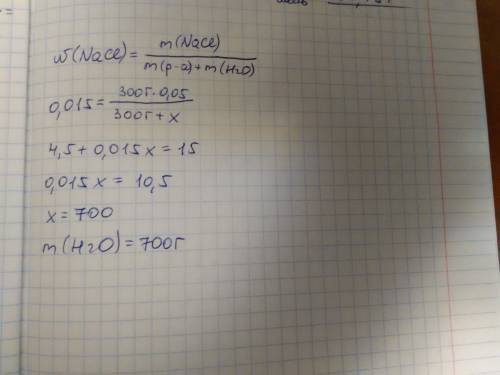 w(NaCl) = m(NaCl) / m(р-а)+m(H2O)
0,015 = 300г·0,05 / 300г + x
4,5 + 0,015x = 15
0,015x = 10,5
x = 700
m(H2O) = 700г